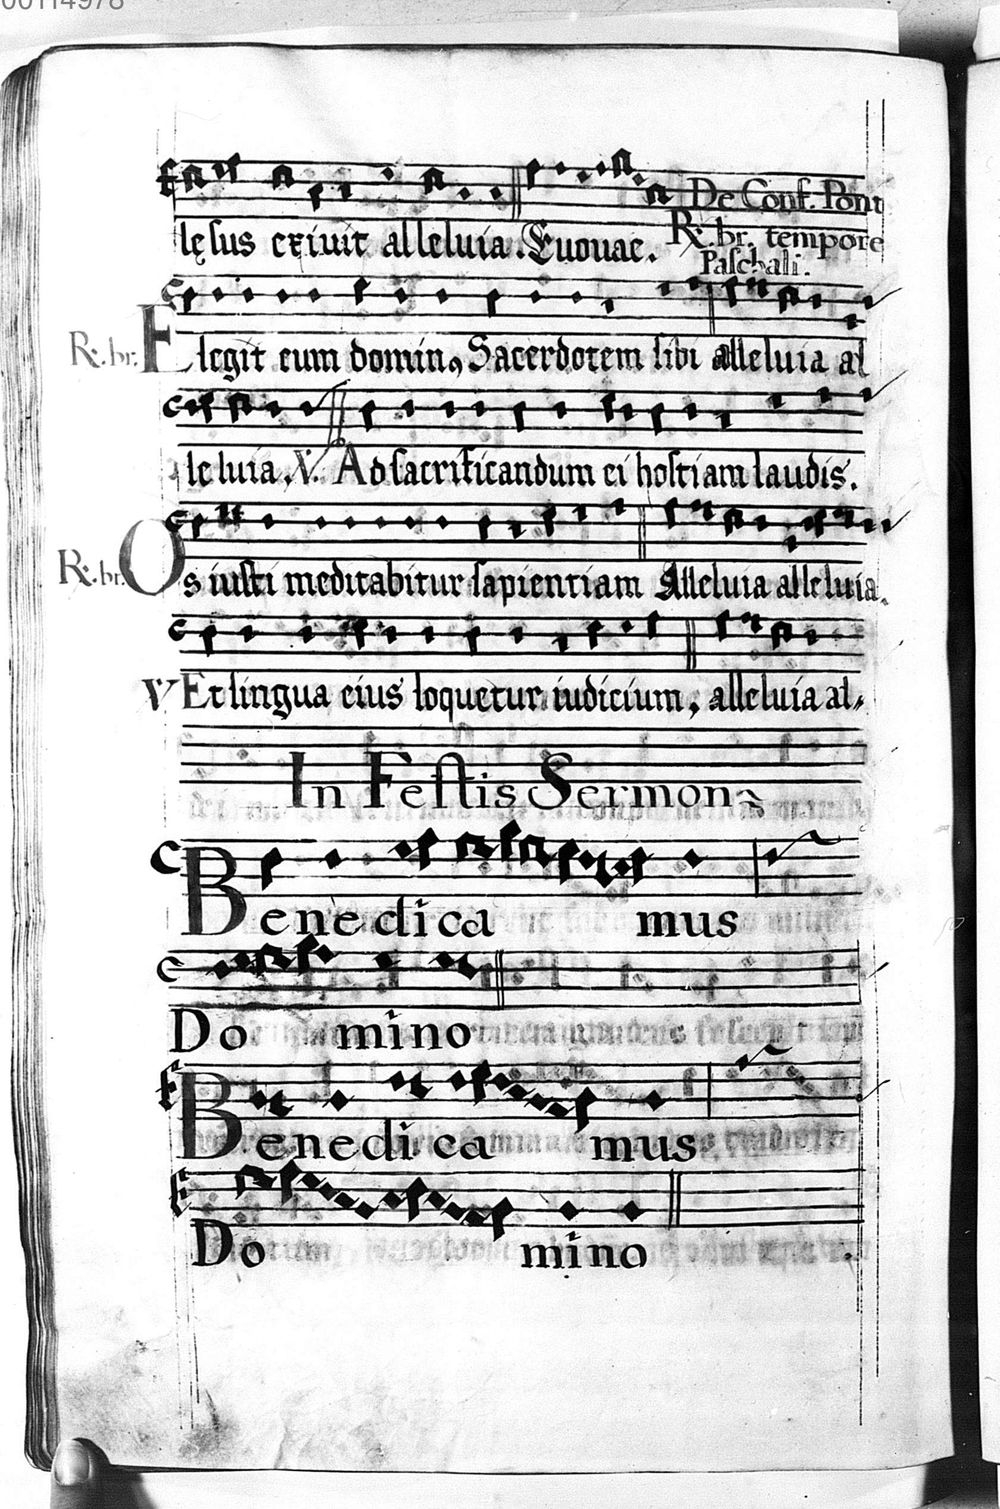 00114978
De Conf. Pont
lęsus exiuit alleluia. Euouae. R. br. tempore
Paschali.
R. br. Elegit eum dominꝰ Sacerdotem sibi alleluia al
leluia. V. Ad sacrificandum ei hostiam laudis.
R. br. Os iusti meditabitur sapientiam Alleluia alleluia.
V Et lingua eius loquetur iudicium, alleluia al,
In Festis Sermon
Benedica mus
Do mino
Benedica mus
Do mino